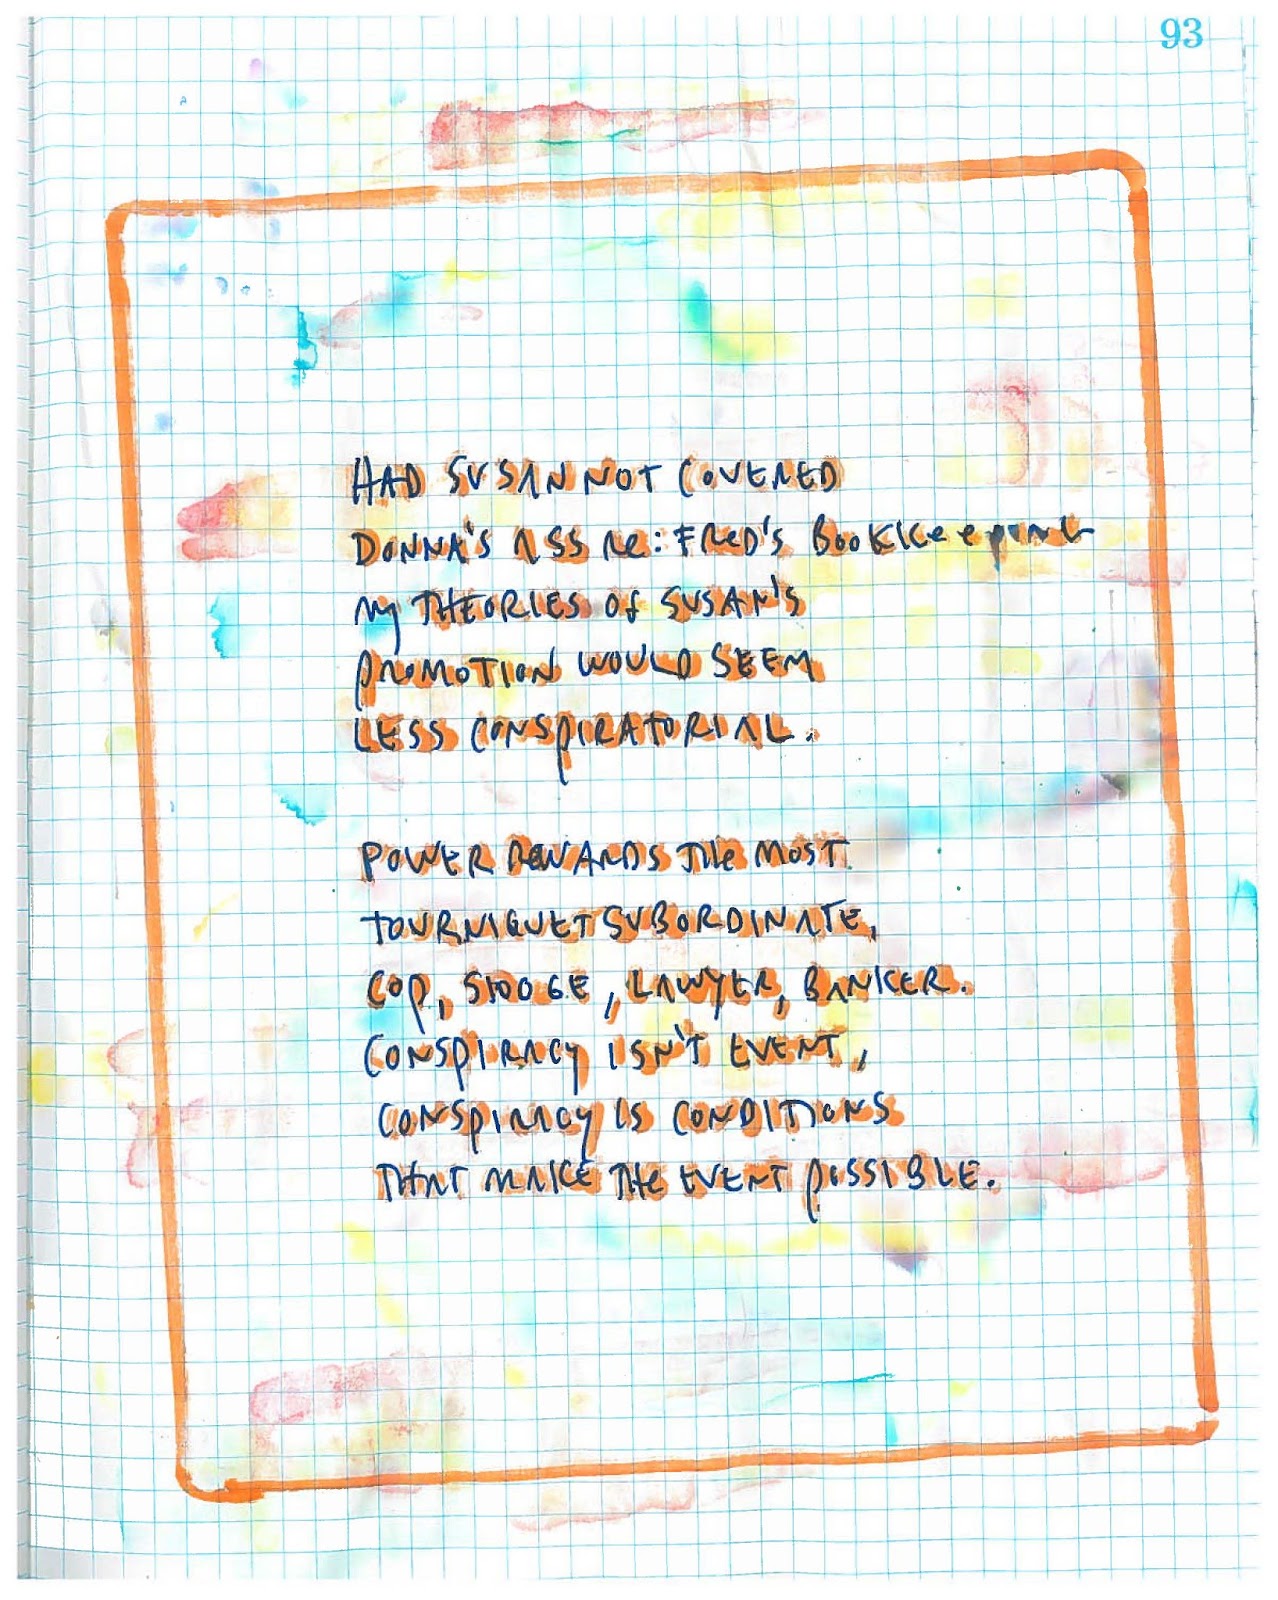 93
HAD SUSAN NOT COVERED
DONNA'S ASS RE: FRED'S BOOKKeeping
My THEORIES OF SUSAN'S
PROMOTION WOULD SEEM
LESS CONSPIRATORIAL.
POWER REWARDS THE MOST
TOURNIQUET SUBORDINATE,
COP, STOOGE, LAWYER, BANKER.
CONSPIRACY ISN'T EVENT,
CONSPIRACY IS CONDITIONS
THAT MAKE THE EVENT POSSIBLE.